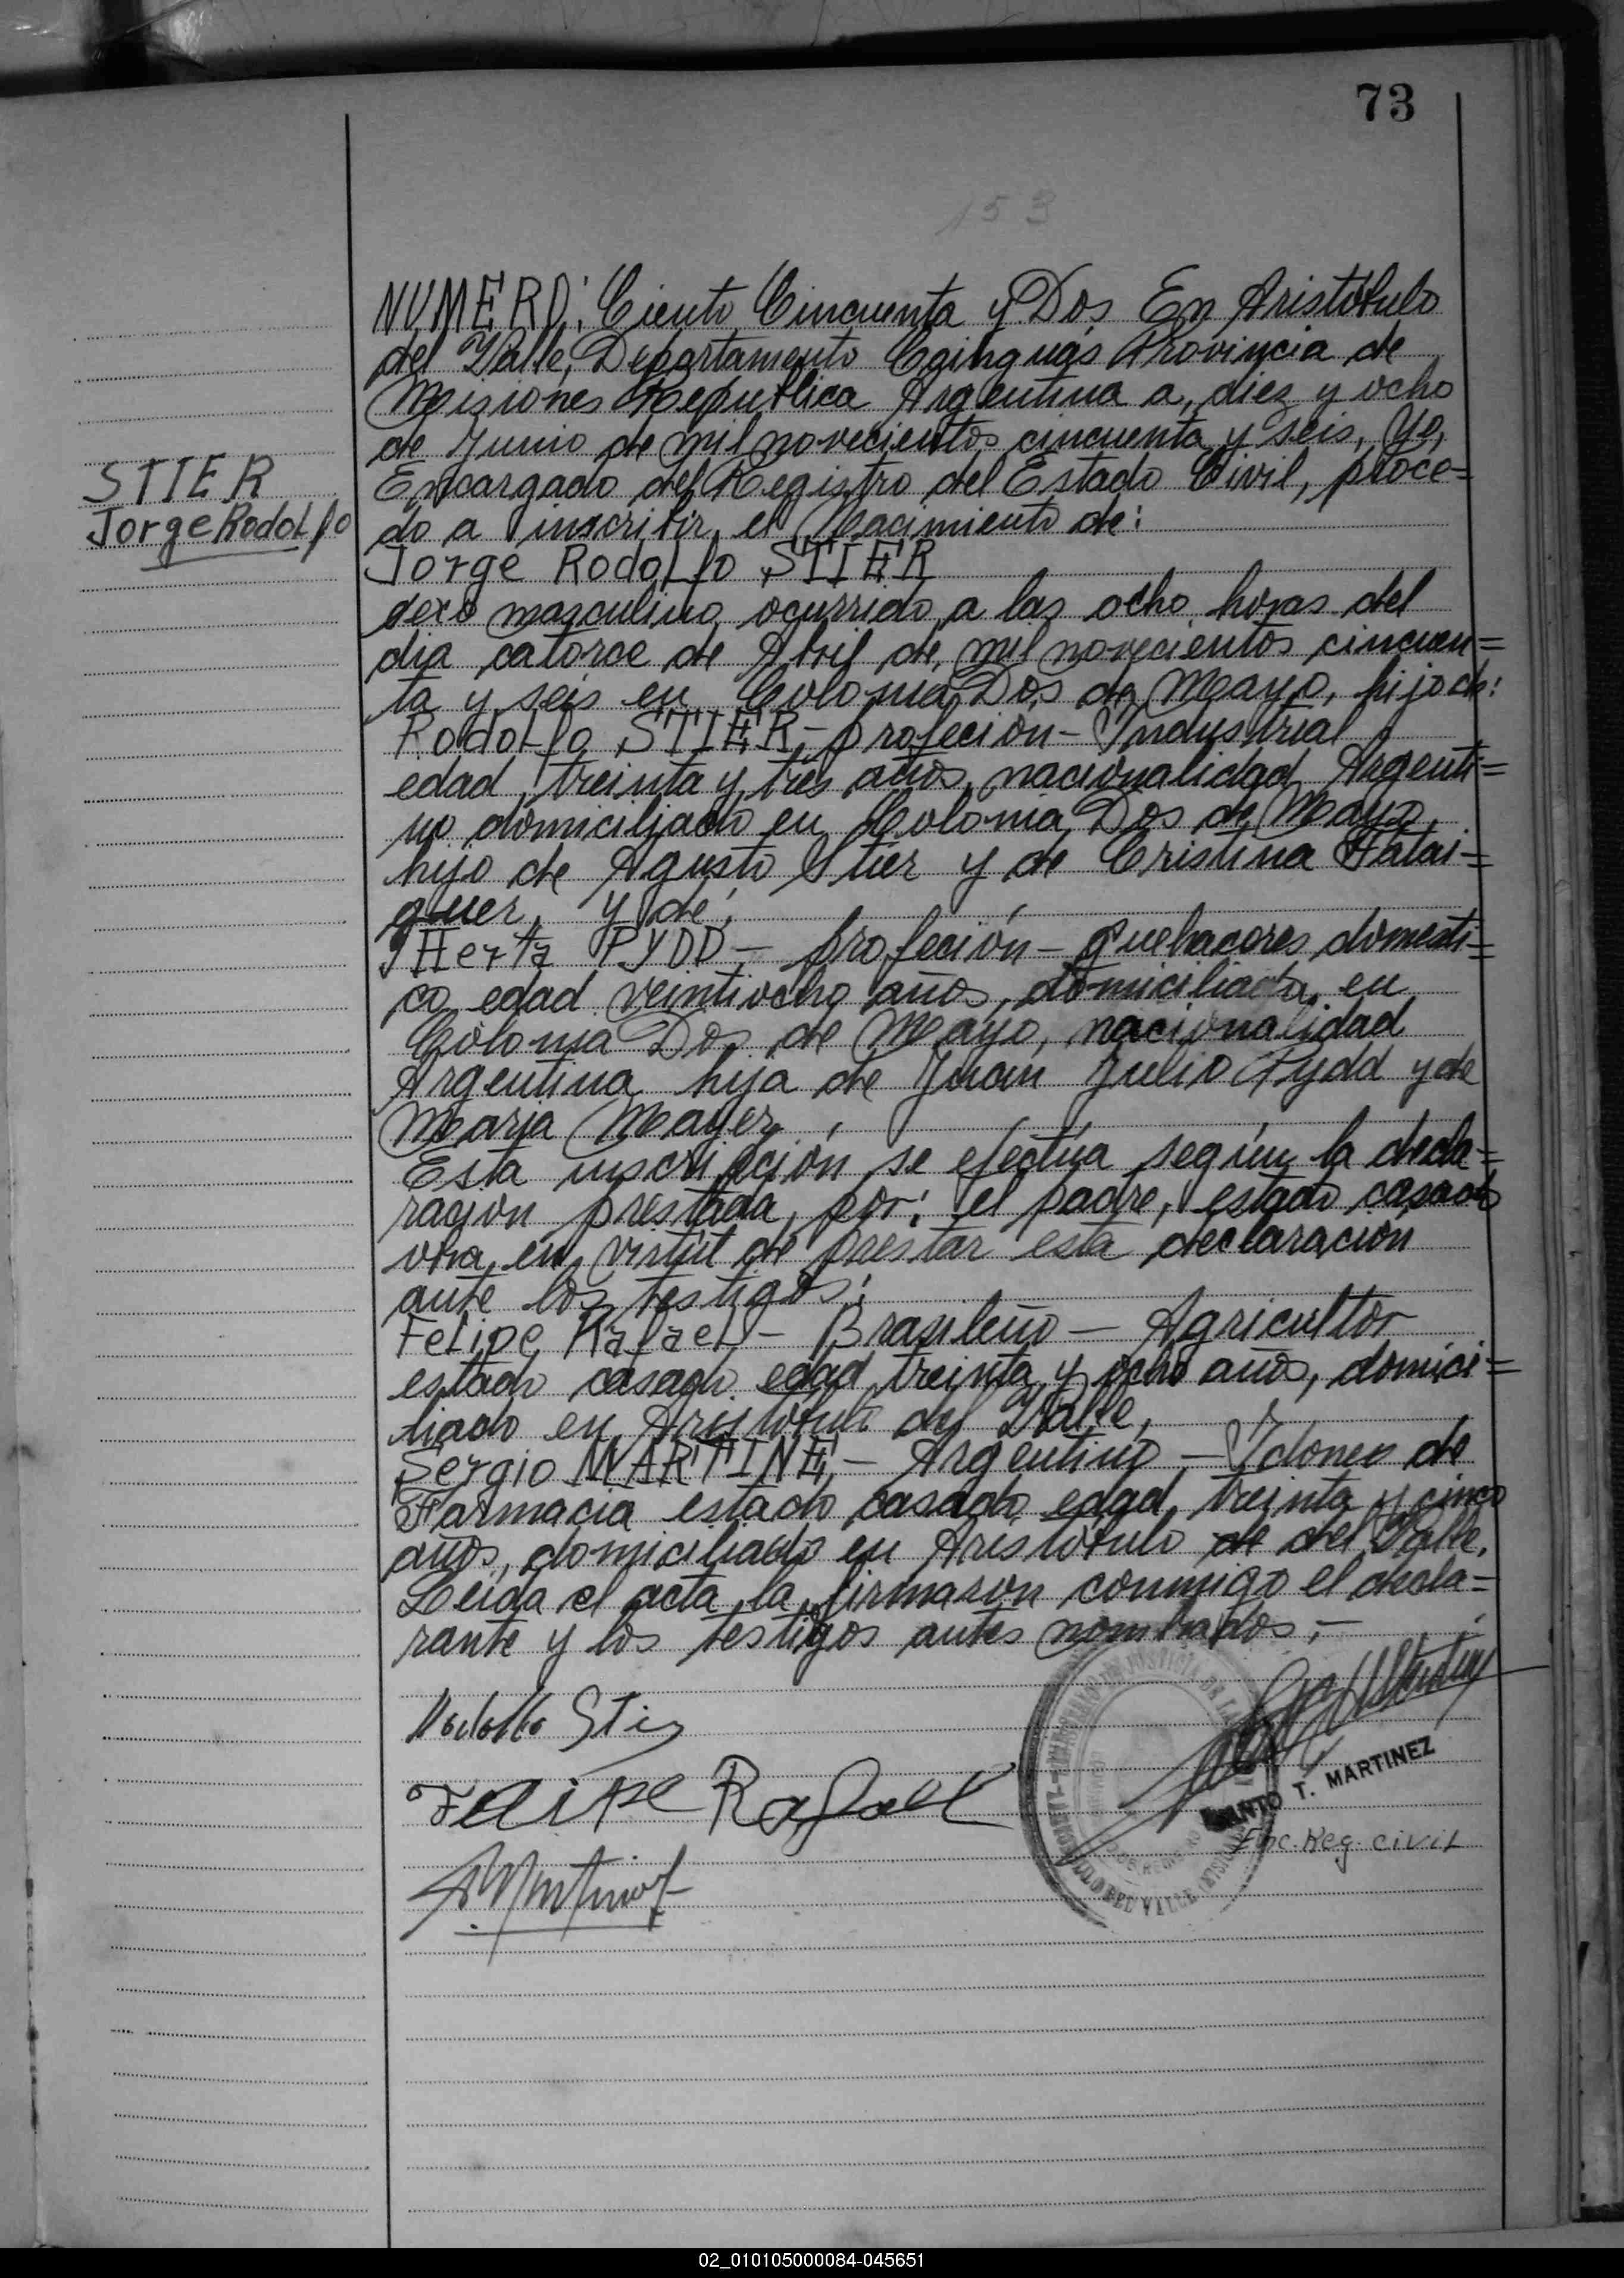 73
153
NUMERO: Ciento Cincuenta y Dos En Aristóbulo
del Valle, Departamento Cainguás Provincia de
Misiones República Argentina a, diez y ocho
de Junio de mil novecientos cincuenta y seis, Yo,
Encargado del Registro del Estado Civil, proce=
do a inscribir el Nacimiento de:
STIER
Jorge Rodolfo
Jorge Rodolfo STIER
sexo masculino ocurrido a las ocho horas del
dia catorce de Abril de mil novecientos cincuen=
ta y seis en Colonia Dos de Mayo, hijo de:
Rodolfo STIER,- profeción - Industrial
edad treinta y tres años, nacionalidad Argenti=
no domiciliado en Colonia Dos de Mayo,
hijo de Agusto Stier y de Cristina Fatai=
guer, y de;
Herta PYDD - profeción - quehaceres domesti=
co edad veintiocho años, domiciliada, en
Colonia Dos de Mayo, nacionalidad
Argentina hija de Juan Julio Pydd y de
Maria Mayer,
Esta inscripción se efectúa según la decla=
racion prestada, por: el padre, estado casado
obra, en, virtut de prestar esta declaración
ante los testigos:
Felipe Rafael - Brasileño - Agricultor
estado casado edad treinta y ocho años, domici=
liado en Aristóbulo del Valle,
Sergio MARTINE,- Argentino - Idoneo de
Farmacia estado casado edad, treinta y cinco
años, domiciliado en Aristóbulo de del Valle.
Leida el acta la firmaron conmigo el decla=
rante y los testigos antes nombados,-
Rodolfo Stier
Felipe Rafael
T. MARTINEZ
Enc. Reg. civil
SMartinez
02_010105000084-045651